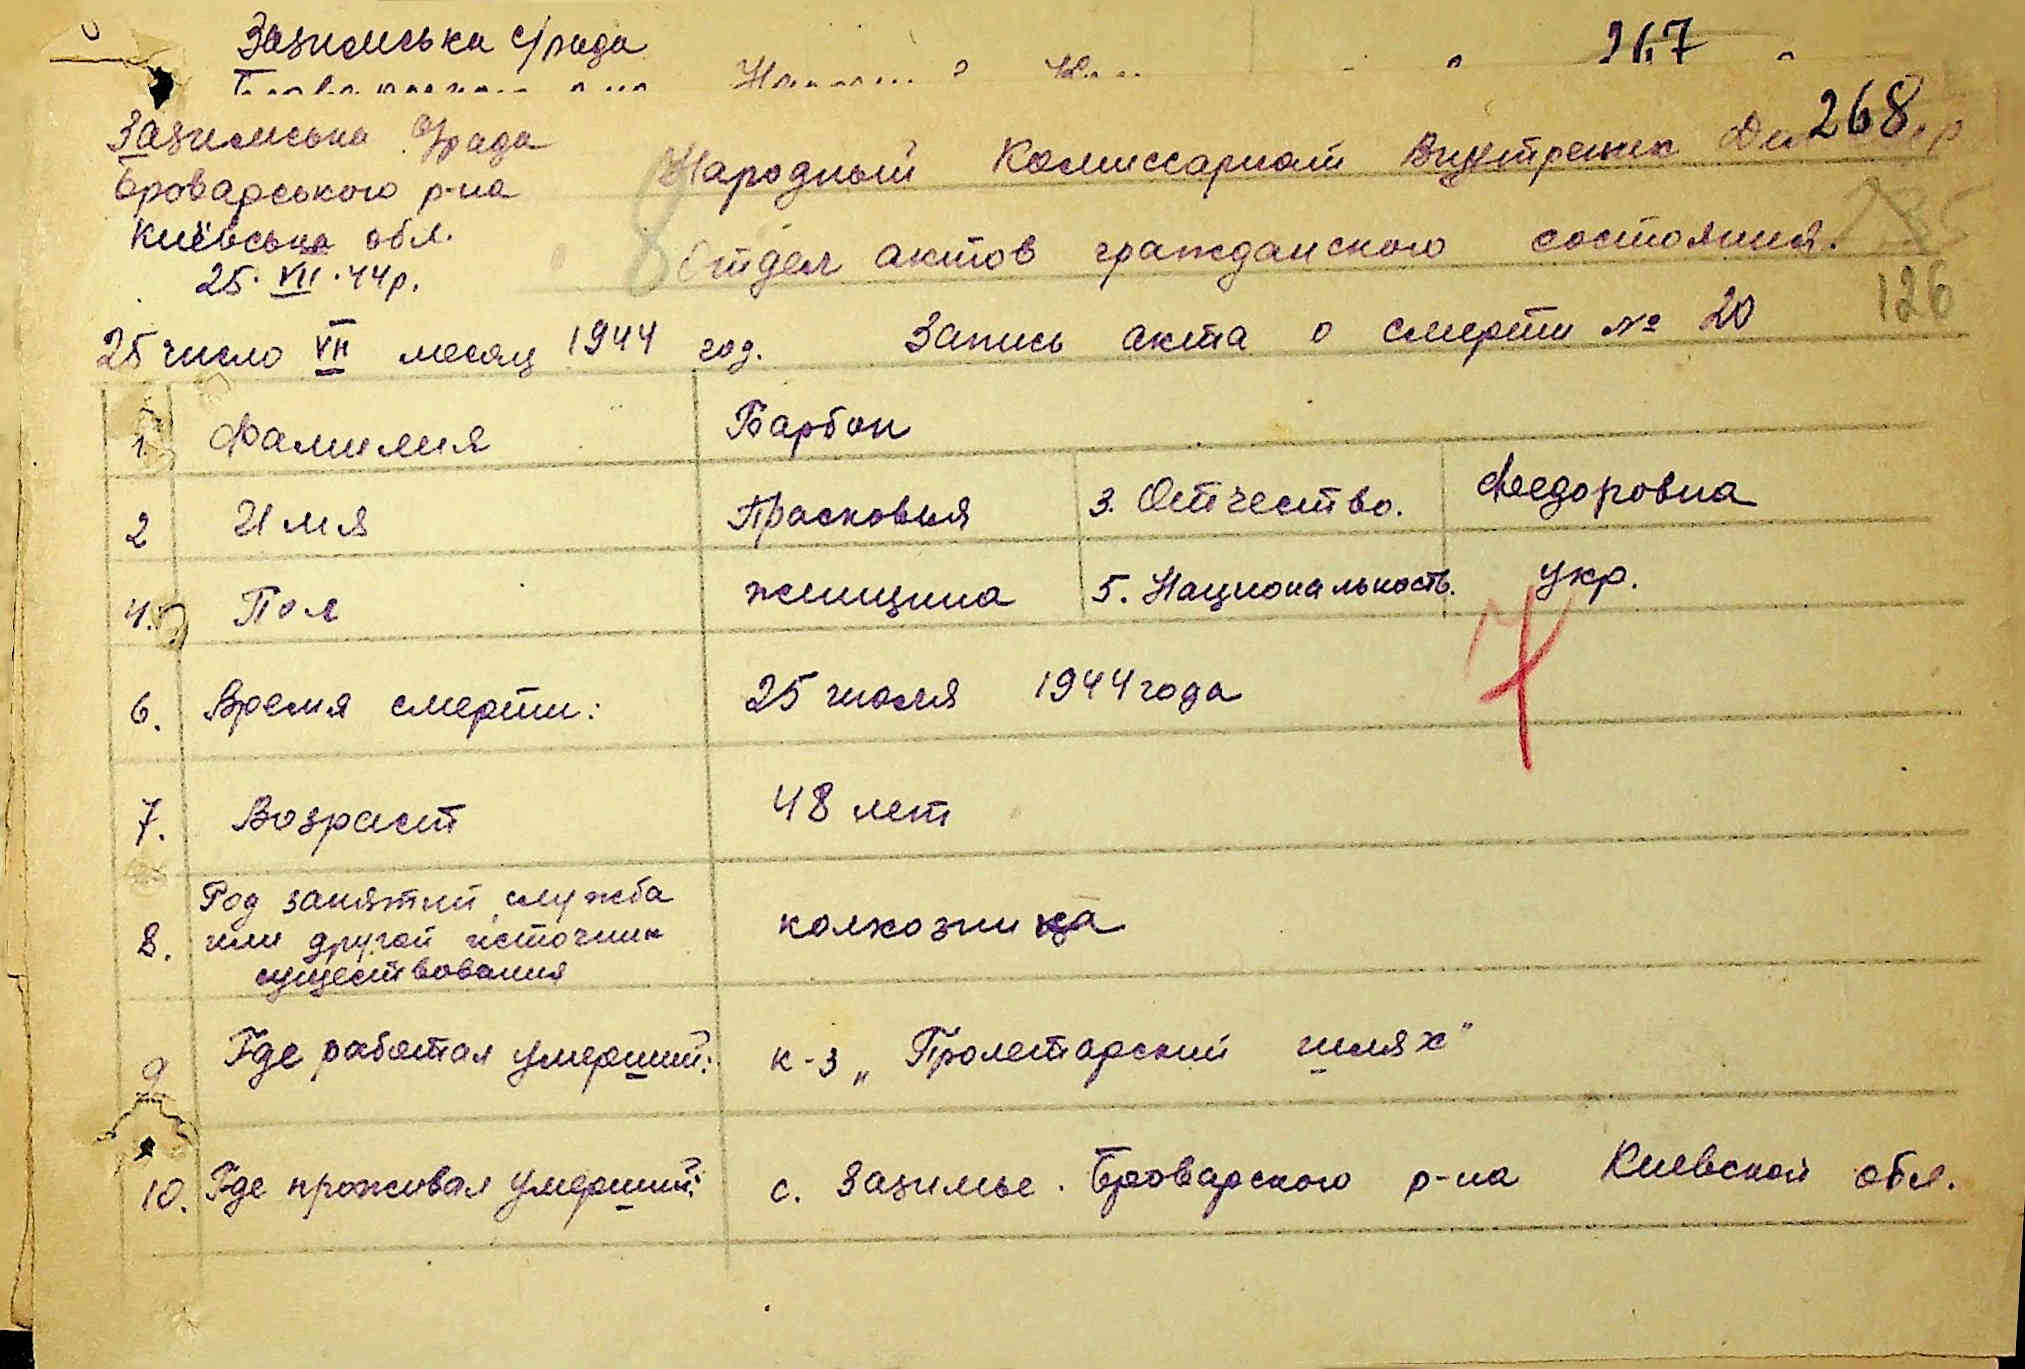 Зазимська с/рада
267
268
Зазимська с/рада
Броварського р-на
Київська обл.
25. VII. 44 р.
Народный Комиссариат Внутрених Дел
Отдел актов гражданского состояния.
126
25 число VII месяц 1944 год. Запись акта о смерти № 20
1. Фамилия Барбон
2 Имя Прасковия 3. Отчество. Федоровна
4. Пол женщина 5. Национальность. укр.
6. Время смерти: 25 июля 1944 года
7. Возраст 48 лет
8. Род занятий, служба
или другой источник
существования
колхозница
9 Где работал умерший: к-з „Пролетарский шлях"
10. Где проживал умерший: с. Зазимье. Броварского р-на Киевской обл.